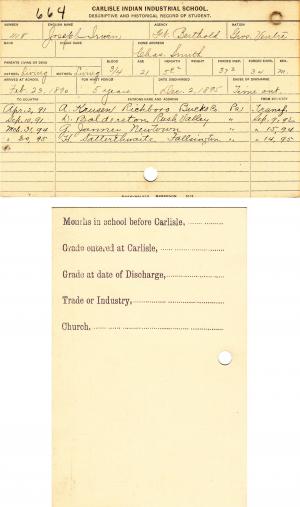 664
CARLISLE INDIAN INDUSTRIAL SCHOOL.
DESCRIPTIVE AND HISTORICAL RECORD OF STUDENT.
NUMBER ENGLISH NAME AGENCY NATION
Joseph Irwin Ft. Berthold Gros Ventre
INDIAN NAME HOME ADDRESS
Chas. Smith
PARENTS LIVING OR DEAD BLOOD AGE HEIGHT WEIGHT FORCED INSP. FORCED EXPR. SEX
FATHER Living MOTHER Living 3/4 21 34 M.
ARRIVED AT SCHOOL FOR WHAT PERIOD DATE DISCHARGED CAUSE OF DISCHARGE
Feb. 23, 1890 5 years Dec. 2, 1895 Time out.
TO COUNTRY PATRONS NAME AND ADDRESS FROM COUNTRY
Apr. 2, 91 Richboro Bucks Co. Pa. Transf.
Sep. 10, 91 D. Balderston Rush Valley " Sep. 9, 92
Mch. 31, 94 G. Janney Newtown " " 15, 94
" 30, 95 H. Satterthwaite Fallsington " " 14, 95
Months in school before Carlisle,
Grade entered at Carlisle,
Grade at date of Discharge,
Trade or Industry,
Church.